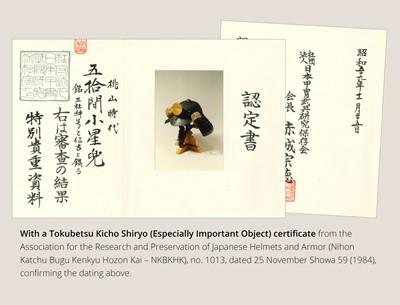 認定書
桃山時代
五拾間小星兜
銘
右は審査の結果
特別貴重資料
昭和五十九年十一月二十五日
社団法人日本甲冑武具研究保存会
会長 赤城宗徳
With a Tokubetsu Kicho Shiryo (Especially Important Object) certificate from the
Association for the Research and Preservation of Japanese Helmets and Armor (Nihon
Katchu Bugu Kenkyu Hozon Kai – NKBKHK), no. 1013, dated 25 November Showa 59 (1984),
confirming the dating above.